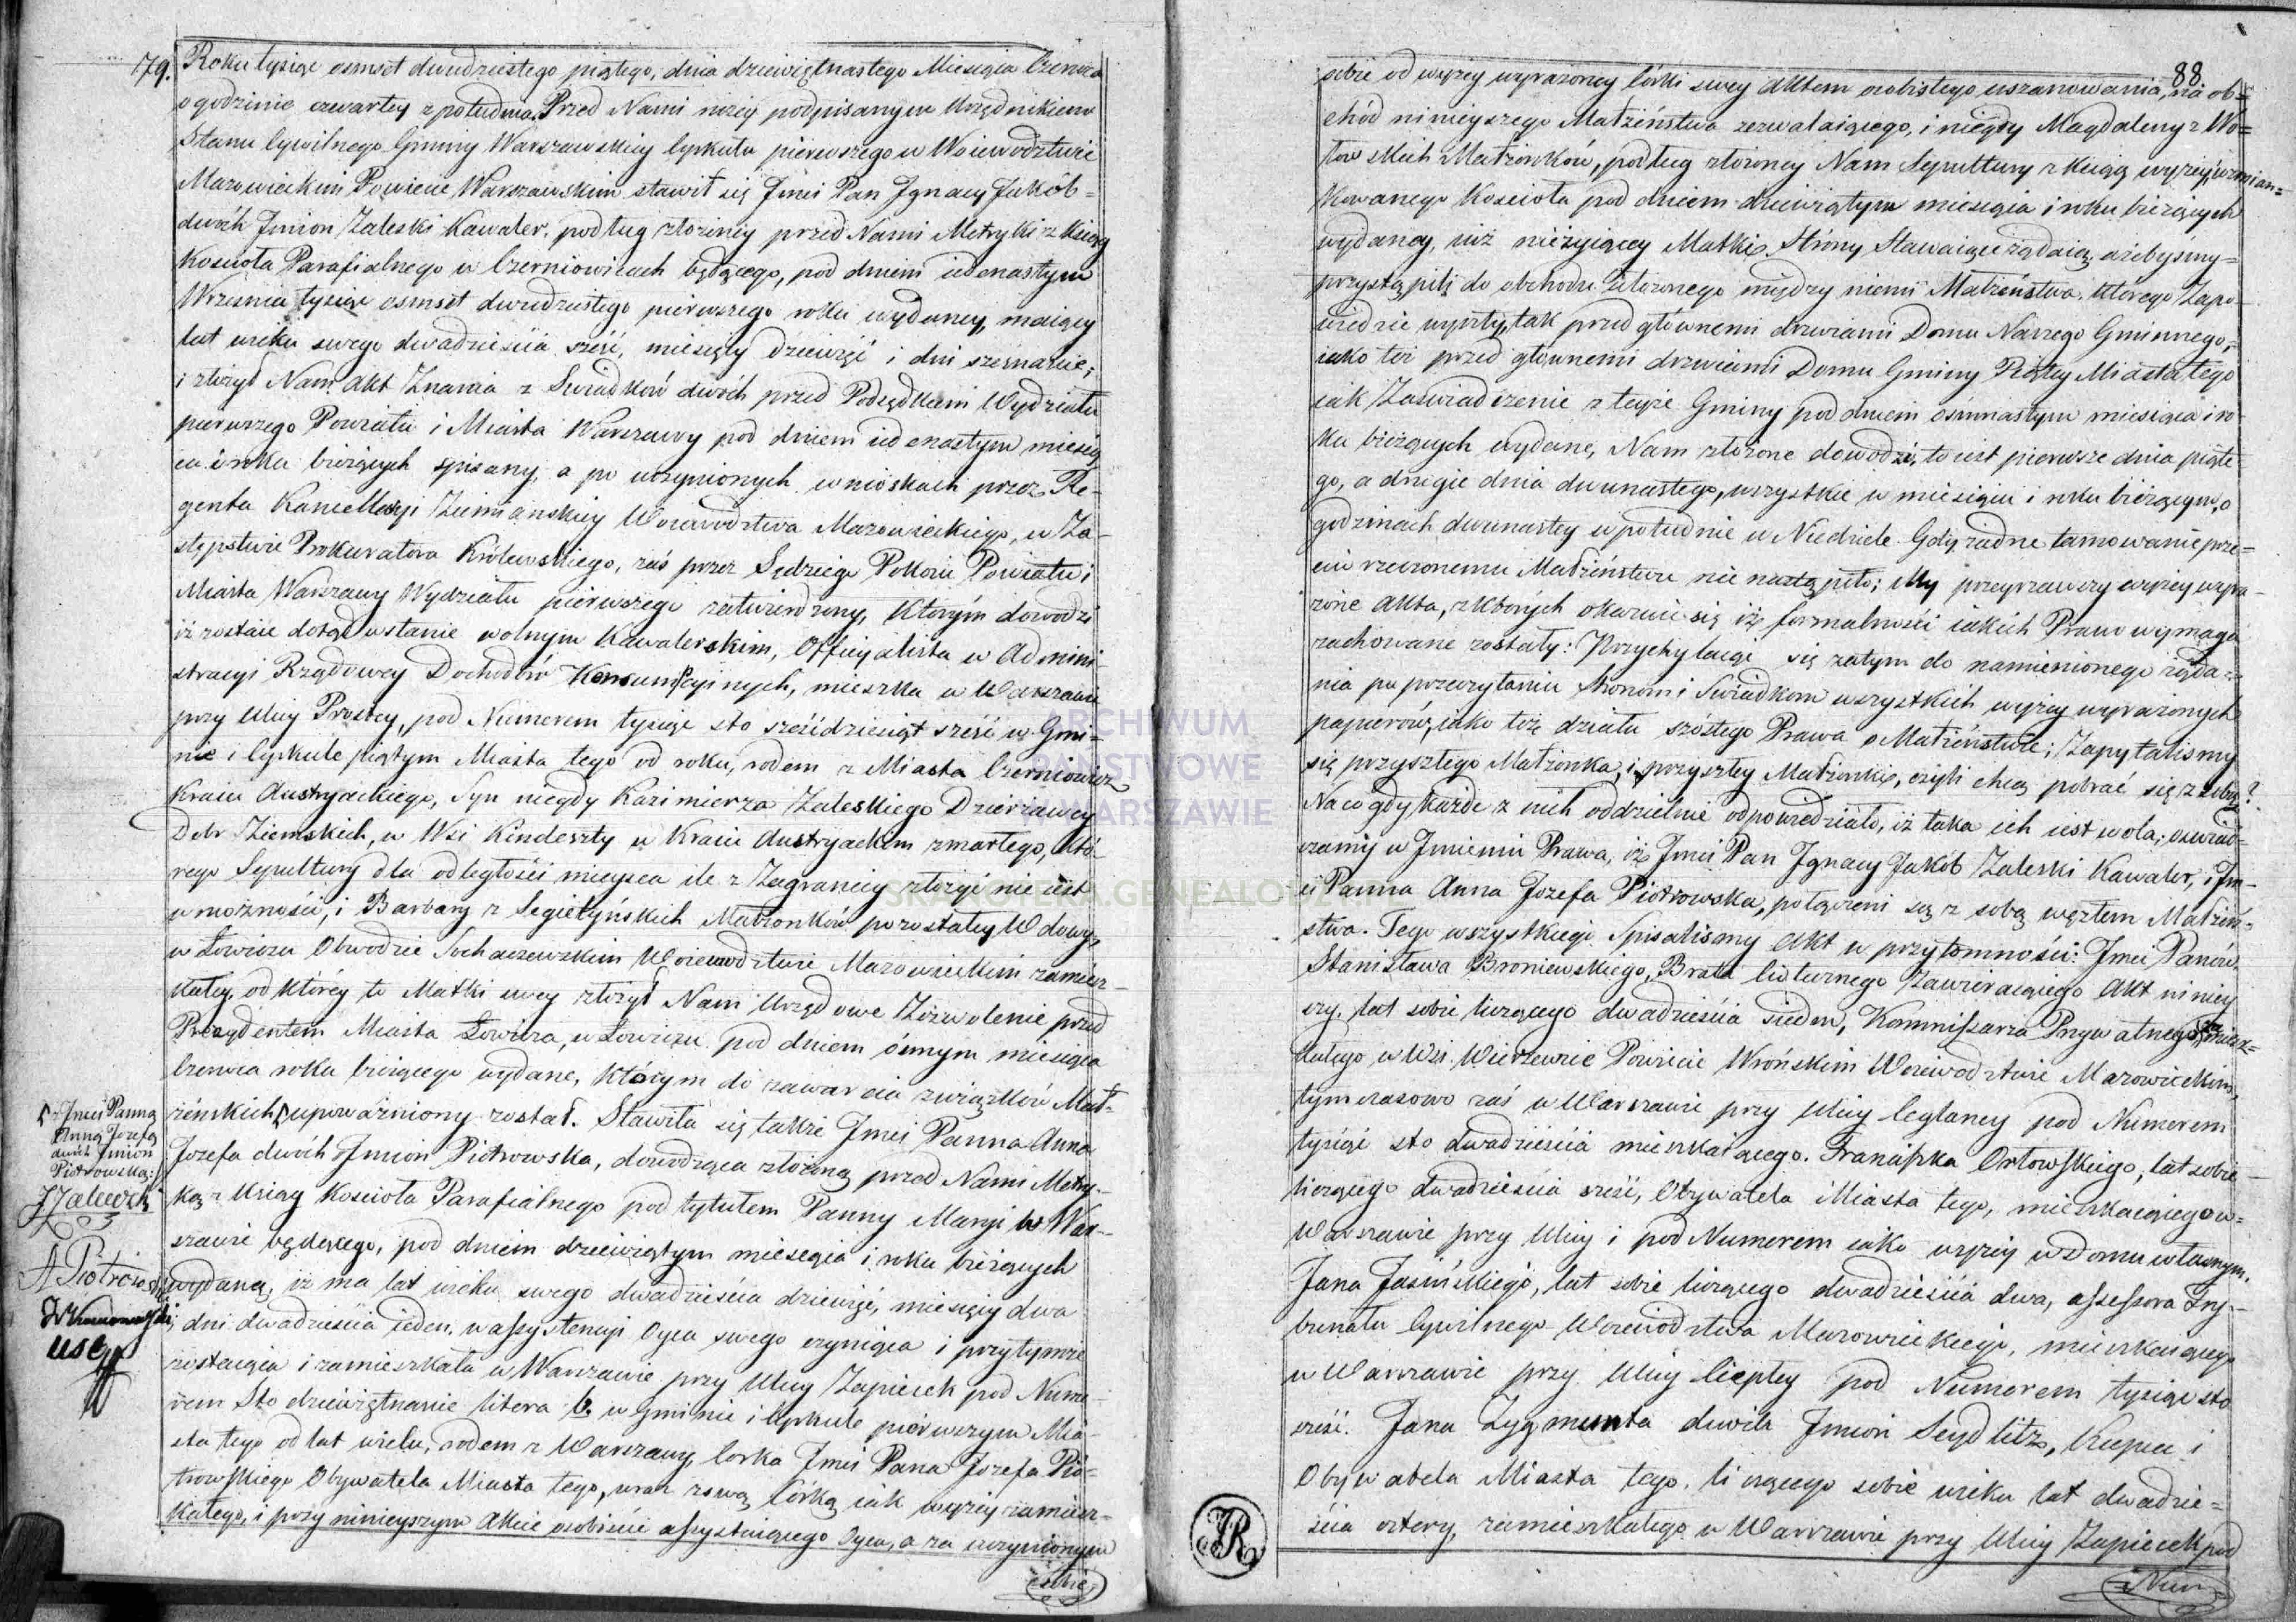 179. Roku tysiąc osmset dwudziestego piątego, dnia dziewiętnastego Miesiąca Czerwca
o godzinie czwartey z południa. Przed Nami niżey podpisanym Urzędnikiem
Stanu Cywilnego Gminy Warszawskiey Cyrkułu pierwszego w Woiewodztwie
Mazowieckim Powiecie Warszawskim, stawił się Jmci Pan Ignacy Jakób
dwóch Jmion Zaleski Kawaler, podług złożoney przed Nami Metryki z Ksiąg
Kościoła Parafialnego w Czerniowicach będącego, pod dniem iedenastym
Września tysiąc osmset dwudziestego pierwszego roku wydaney, maiący
lat wieku swego dwadzieścia sześć, miesięcy dziewięć i dni szesnaście;
i złożył Nam Akt Znania z Świadków dwóch przed Podsędkiem Wydziału
pierwszego Powiatu i Miasta Warszawy pod dniem iedenastym miesią
ca i roku bieżących spisany, a po uczynionych wnioskach przez Re-
genta Kancellaryi Ziemiańskiey Woiewodztwa Mazowieckiego, w Za-
stępstwie Prokuratora Królewskiego, zaś przez Sędziego Pokoiu Powiatu i
Miasta Warszawy Wydziału pierwszego zatwierdzony, którym dowodzi
iż zostaie dotąd w stanie wolnym Kawalerskim, Officyalista w Admini-
stracyi Rządowey Dochodów Konsumpcyinych, mieszka w Warszawie
przy Ulicy Prostey, pod Numerem tysiąc sto sześćdziesiąt sześć w Gmi-
nie i Cyrkule piątym Miasta tego od roku, rodem z Miasta Czerniowicz
Kraiu Austryackiego, Syn niegdy Kazimierza Zaleskiego Dzierżawcy
Dobr Ziemskich, w Wsi Kindeszty w Kraiu Austryackim zmarłego, któ-
rego Sepultury dla odległości mieysca ile z Zagranicy złożyć nie iest
w możności, i Barbary z Segietyńskich Małżonków pozostałey Wdowy,
w Łowiczu Obwodzie Sochaczewskim Woiewodztwie Mazowieckim zamiesz-
kałey, od którey to Matki swey złożył Nam Urzędowe Zezwolenie przed
Prezydentem Miasta Łowicza, w Łowiczu pod dniem ósmym miesiąca
Czerwca roku bieżącego wydane, którym do zawarcia związków Mał-
żeńskich upoważniony został. Stawiła się także Jmci Panna Anna
Józefa dwóch Jmion Piotrowska, dowodząca złożoną przed Nami Metry-
ką z Ksiąg Kościoła Parafialnego pod tytułem Panny Maryi w War-
szawie będącego, pod dniem dziewiątym miesiąca i roku bieżących
wydaną, iż ma lat wieku swego dwadzieścia dziewięć, miesięcy dwa
dni dwadzieścia ieden, w assystencyi Oyca swego czyniąca i przytymże
zostaiąca i zamieszkała w Warszawie przy Ulicy Zapiecek pod Nume-
rem Sto dziewiętnaście litera b. w Gminie i Cyrkule pierwszym Mia-
sta tego od lat wielu, rodem z Warszawy, Corka Jmci Pana Józefa Pio-
trowskiego Obywatela Miasta tego, wraz z swą Córką iak wyżey zamiesz-
kałego, i przy ninieyszym Akcie osobiście assystuiącego Oyca, a za uczynionym
sobie
Jmci Panną
Anną Józefą
dwóch Jmion
Piotrowską:
J Zaleski
A Piotrowska
USC
88.
sobie od wyżey wyrażoney Córki swey Aktem osobistego uszanowania, na ob-
chód ninieyszego Małżeństwa zezwalaiącego, i niegdy Magdaleny z Wo-
łowskich Małżonków, podług złożoney Nam Sepultury z Ksiąg wyżey wzmian-
kowanego Kościoła pod dniem dziewiątym miesiąca i roku bieżących
wydaney, iuż nieżyiącey Matki. Strony Stawaiące żądaią, ażebyśmy
przystąpili do obchodu ułożonego między niemi Małżeństwa, którego Zapo-
wiedzie wyszły, tak przed głównemi drzwiami Domu Naszego Gminnego,
iako też przed głównemi drzwiami Domu Gminy Piątey Miasta tego
iak Zaświadczenie z teyże Gminy pod dniem ósmnastym miesiąca i ro-
ku bieżących wydane, Nam złożone dowodzi, to iest pierwsze dnia piąte-
go, a drugie dnia dwunastego, wszystkie w miesiącu i roku bieżącym, o
godzinach dwunastey w południe w Niedziele. Gdy żadne tamowanie prze-
ciw rzeczonemu Małżeństwu nie nastąpiło; My przeyrzawszy wyżey wyra-
żone Akta, z których okazuie się iż formalności iakich Prawo wymaga
zachowane zostały: Przychylaiąc się zatym do namienionego żąda-
nia po przeczytaniu Stronom i Świadkom wszystkich wyżey wyrażonych
papierów, iako też działu szóstego Prawa o Małżeństwie; Zapytaliśmy
się przyszłego Małżonka, i przyszłey Małżonki, czyli chcą pobrać się z sobą?
Na co gdy każde z nich oddzielnie odpowiedziało, iż taka ich iest wola; oświad-
czamy w Jmieniu Prawa, iż Jmci Pan Ignacy Jakób Zaleski Kawaler, i Jm-
ci Panna Anna Józefa Piotrowska, połączeni są z sobą węzłem Małżeń-
stwa. Tego wszystkiego Spisaliśmy Akt w przytomności: Jmci Panów
Stanisława Broniewskiego, Brata Ciotecznego Zawieraiącego Akt niniey
szy, lat sobie liczącego dwadzieścia siedm, Kommissarza Prywatnego, zamiesz-
kałego w Wsi Wierzewcie Powiecie Wrońskim Woiewodztwie Mazowieckim,
tymczasowo zaś w Warszawie przy Ulicy Ceglaney pod Numerem
tysiąc sto dwadzieścia mieszkaiącego. Franciszka Orłowskiego, lat sobie
liczącego dwadzieścia sześć, Obywatela Miasta tego, mieszkaiącego w
Warszawie przy Ulicy i pod Numerem iako wyżey w Domu własnym.
Jana Jasińskiego, lat sobie liczącego dwadzieścia dwa, assessora Try-
bunału Cywilnego Woiewodztwa Mazowieckiego, mieszkaiącego
w Warszawie przy Ulicy Ciepłey pod Numerem tysiąc sto
sześć. Jana Zygmunta dwóch Jmion Seydlitz, Kupca i
Obywatela Miasta tego, liczącego sobie wieku lat dwadzie-
ścia cztery, zamieszkałego w Warszawie przy Ulicy Zapiecek pod
Num
JR
ARCHIWUM
PAŃSTWOWE
W WARSZAWIE
SKANOTEKA.GENEALODZY.PL